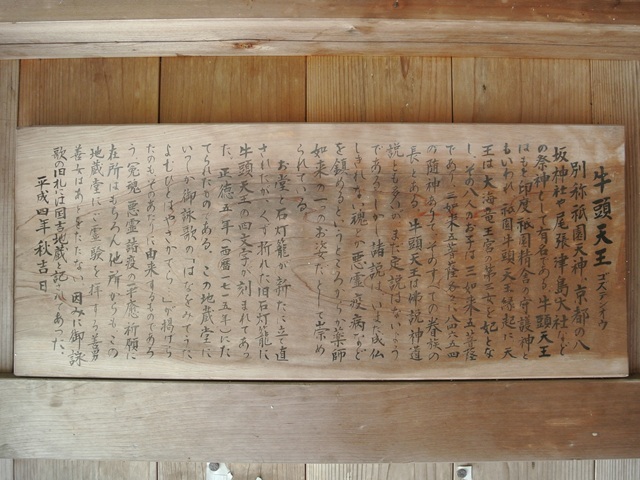 牛頭天王 ゴズテンノウ
別称祇園天神、京都の八
坂神社や尾張津島大社など
の祭神として有名である 牛頭天王
はもと印度祇園精舎の守護神と
もいわれ 祇園牛頭天王縁起に天
王は大海竜王宮の第三女を妃とな
し、その八人のお子は三如来五菩薩
であり
の随神ありて そのすべての眷族の
長とある 牛頭天王は佛説神道
説とも多いが また定説はないよう
である しかし諸説
しきれない魂や悪霊疫病など
を鎮めるというところから 薬師
如来の一つのお姿だとして崇め
られている
お堂と石灯籠が新たに立て直
されたが、くず折れた旧石灯籠に
牛頭天王の四文字が刻まれてあっ
た、正徳五年(西暦一七一五年)にた
てられたものである この地蔵堂に
いつしか御詠歌の「はなをみてうた
よむひとはやさかでら」が掲げら
れたのもそのあたりに由来するものであろ
う 冤魂、悪霊、諸疫の平癒に祈願に
在所はもちろん他所からもこの
地蔵堂にご霊験を拝する善男
善女はあとをたたない 因みに御詠
歌の旧札には国吉地蔵と記されてあった、
平成四年 秋吉日